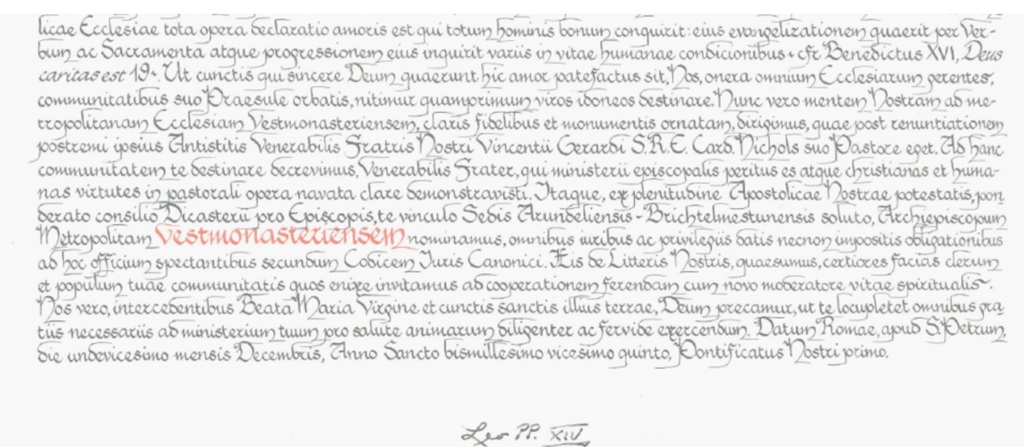 licae Ecclesiae tota opera declaratio amoris est qui totum hominis bonum conquirit: eius evangelizationem quaerit per Ver-
bum ac Sacramenta atque progressionem eius inquirit variis in vitae humanae condicionibus" cfr Benedictus XVI, Deus
caritas est 19". Ut cunctis qui sincere Deum quaerunt hic amor patefactus sit, Nos, onera omnium Ecclesiarum gerentes,
communitatibus suo Praesule orbatis, nitimur quamprimum viros idoneos destinare. Nunc vero mentem Nostram ad me-
tropolitanam Ecclesiam Vestmonasteriensem, claris fidelibus et monumentis ornatam, dirigimus, quae post renuntiationem
postremi ipsius Antistitis Venerabilis Fratris Nostri Vincentii Gerardi S.R.E. Card. Nichols suo Pastore eget. Ad hanc
communitatem te destinare decrevimus, Venerabilis Frater, qui ministerii episcopalis peritus es atque christianas et huma-
nas virtutes in pastorali opera navata clare demonstravisti. Itaque, ex plenitudine Apostolicae Nostrae potestatis, pon
derato consilio Dicasterii pro Episcopis, te vinculo Sedis Arundeliensis-Brichtelmestunensis soluto, Archiepiscopum
Metropolitam Vestmonasteriensem nominamus, omnibus iuribus ac privilegiis datis necnon impositis obligationibus
ad hoc officium spectantibus secundum Codicem Iuris Canonici. His de Litteris Nostris, quaesumus, certiores facias clerum
et populum tuae communitatis quos enixe invitamus ad cooperationem ferendam cum novo moderatore vitae spiritualis.
Nos vero, intercedentibus Beata Maria Virgine et cunctis sanctis illius terrae, Deum precamur, ut te locupletet omnibus gra
tiis necessariis ad ministerium tuum pro salute animarum diligenter ac fervide exercendum. Datum Romae, apud S. Petrum,
die undevicesimo mensis Decembris, Anno Sancto bismillesimo vicesimo quinto, Pontificatus Nostri primo.
Leo PP. XIV